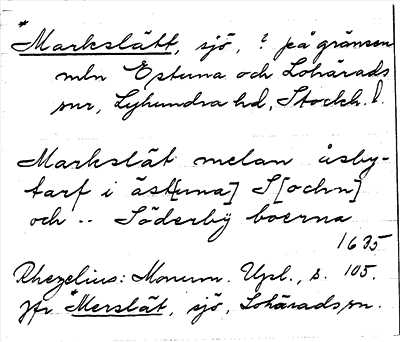 *Markslätt, sjö, ? på gränsen
mln Estuna och Lohärads
snr, Lyhundra hd, Stockh. l.
Markslät melan åsby-
tarf i äst[una] S[ochn]
och .. Söderby boerna
1635
Rhezelius: Monum. Upl., s. 105.
Jfr *Merslät, sjö, Lohärads sn.